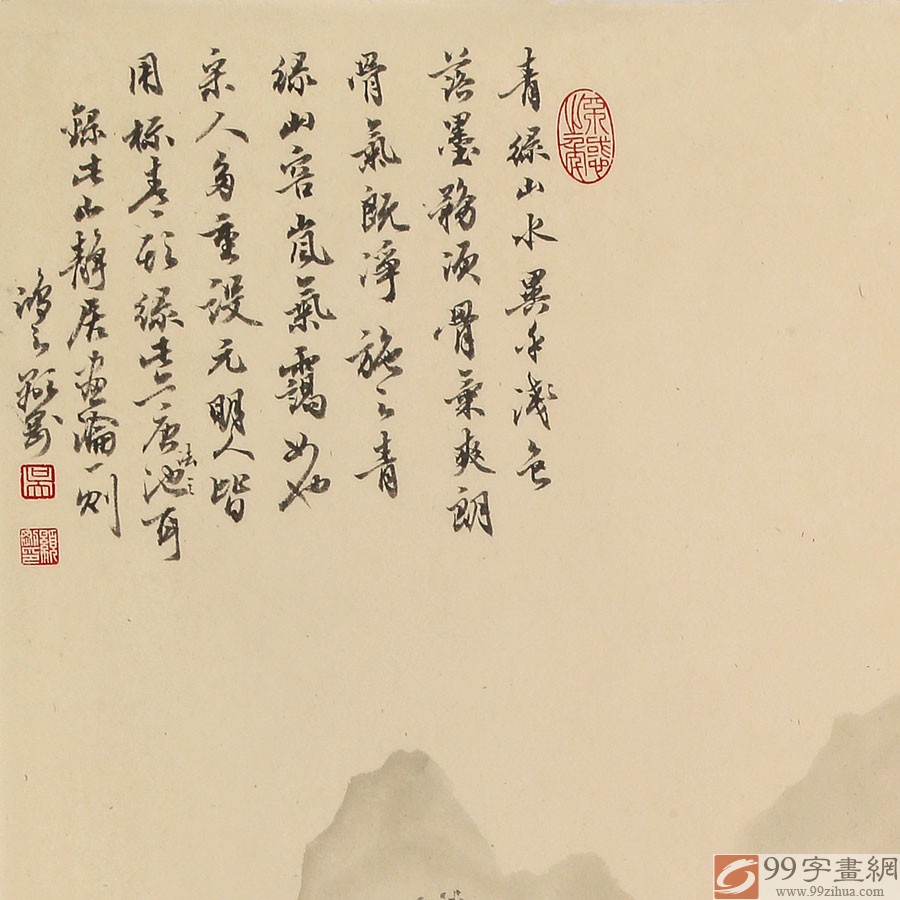 青綠山水異乎淺色
落墨務須骨氣爽朗
骨氣既淨施之青
綠山容嵐氣靄如也
宋人多重設元明人皆
用標青頭綠此亦唐法之池耳
錄此山靜居畫論一則
鴻之
吳
99字畫網
www.99zihua.com